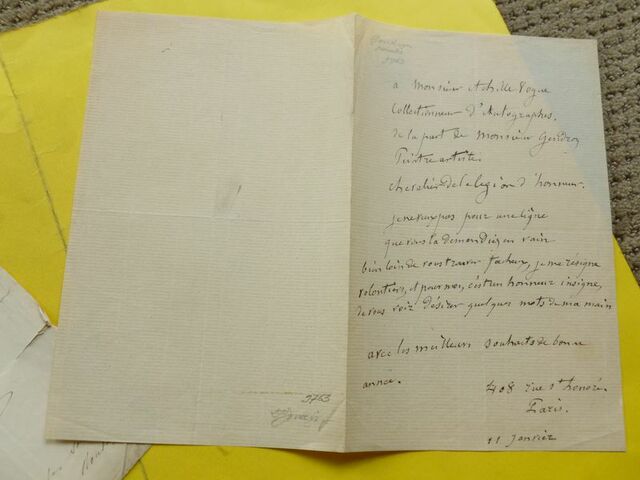 a Monsieur Achille Vogue
Collectionneur d'Autographes.
de la part de Monsieur Gendron
Peintre artiste
chevalier de la legion d'honneur.
je ne veux pas pour une ligne
que vous la demandiez en vain
bien loin de vous trouver facheux, je me resigne
volontiers, et pour moi, c'est un honneur insigne,
de vous voir désirer quelques mots de ma main
avec les meilleurs souhaits de bonne
année.
408 rue st honoré
Paris.
11 Janvier
9763